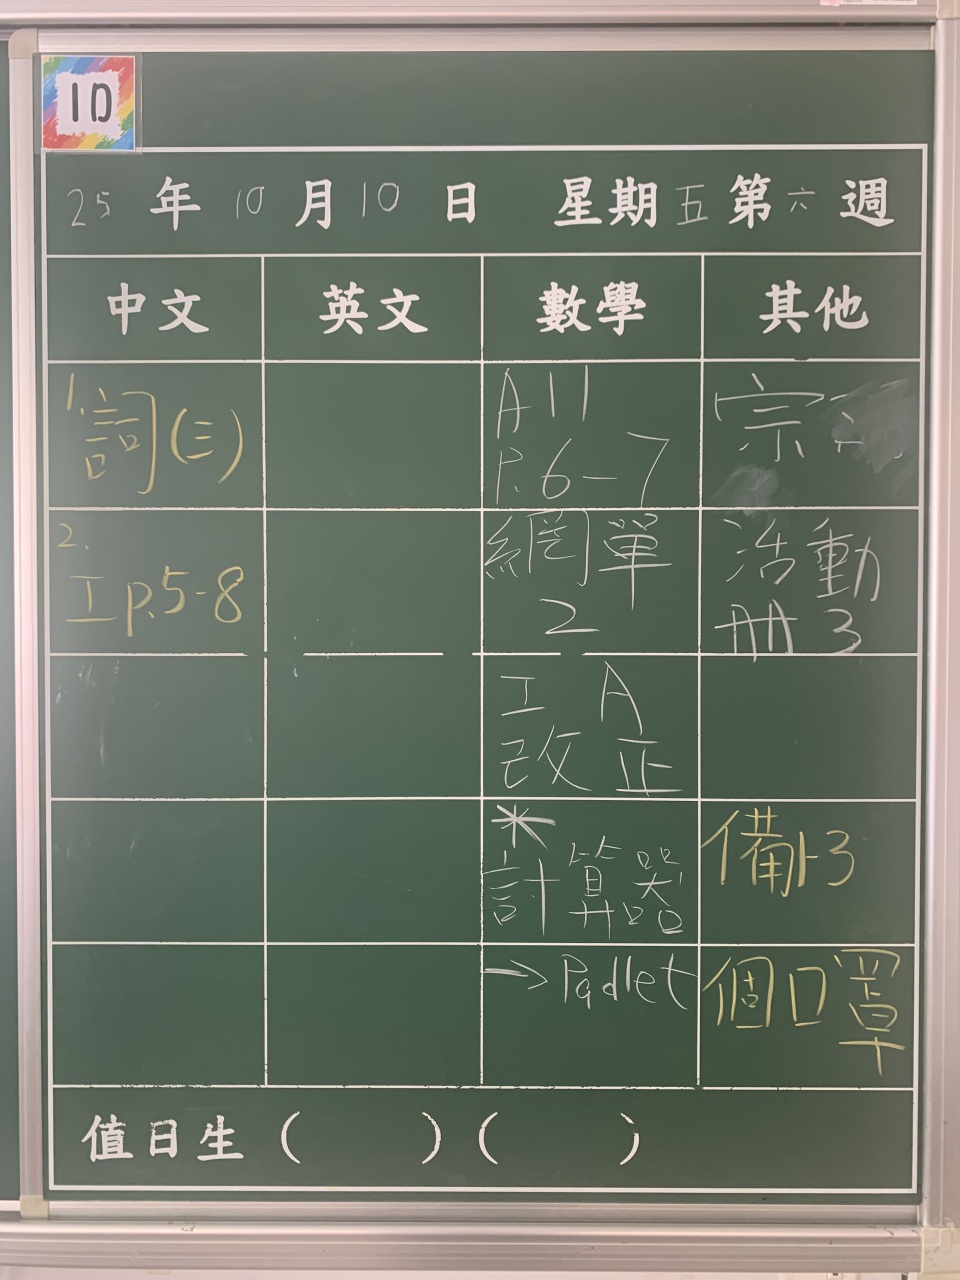 10
25 年 10 月 10 日 星期五 第六週
中文 英文 數學 其他
1. 詞(三)
2. 工p.5-8
A11
P.6-7
網單
2
工 A
改正
*
計算器
→ Padlet
宗
活動
冊 3
備卜3
個口罩
值日生 ( ) ( )